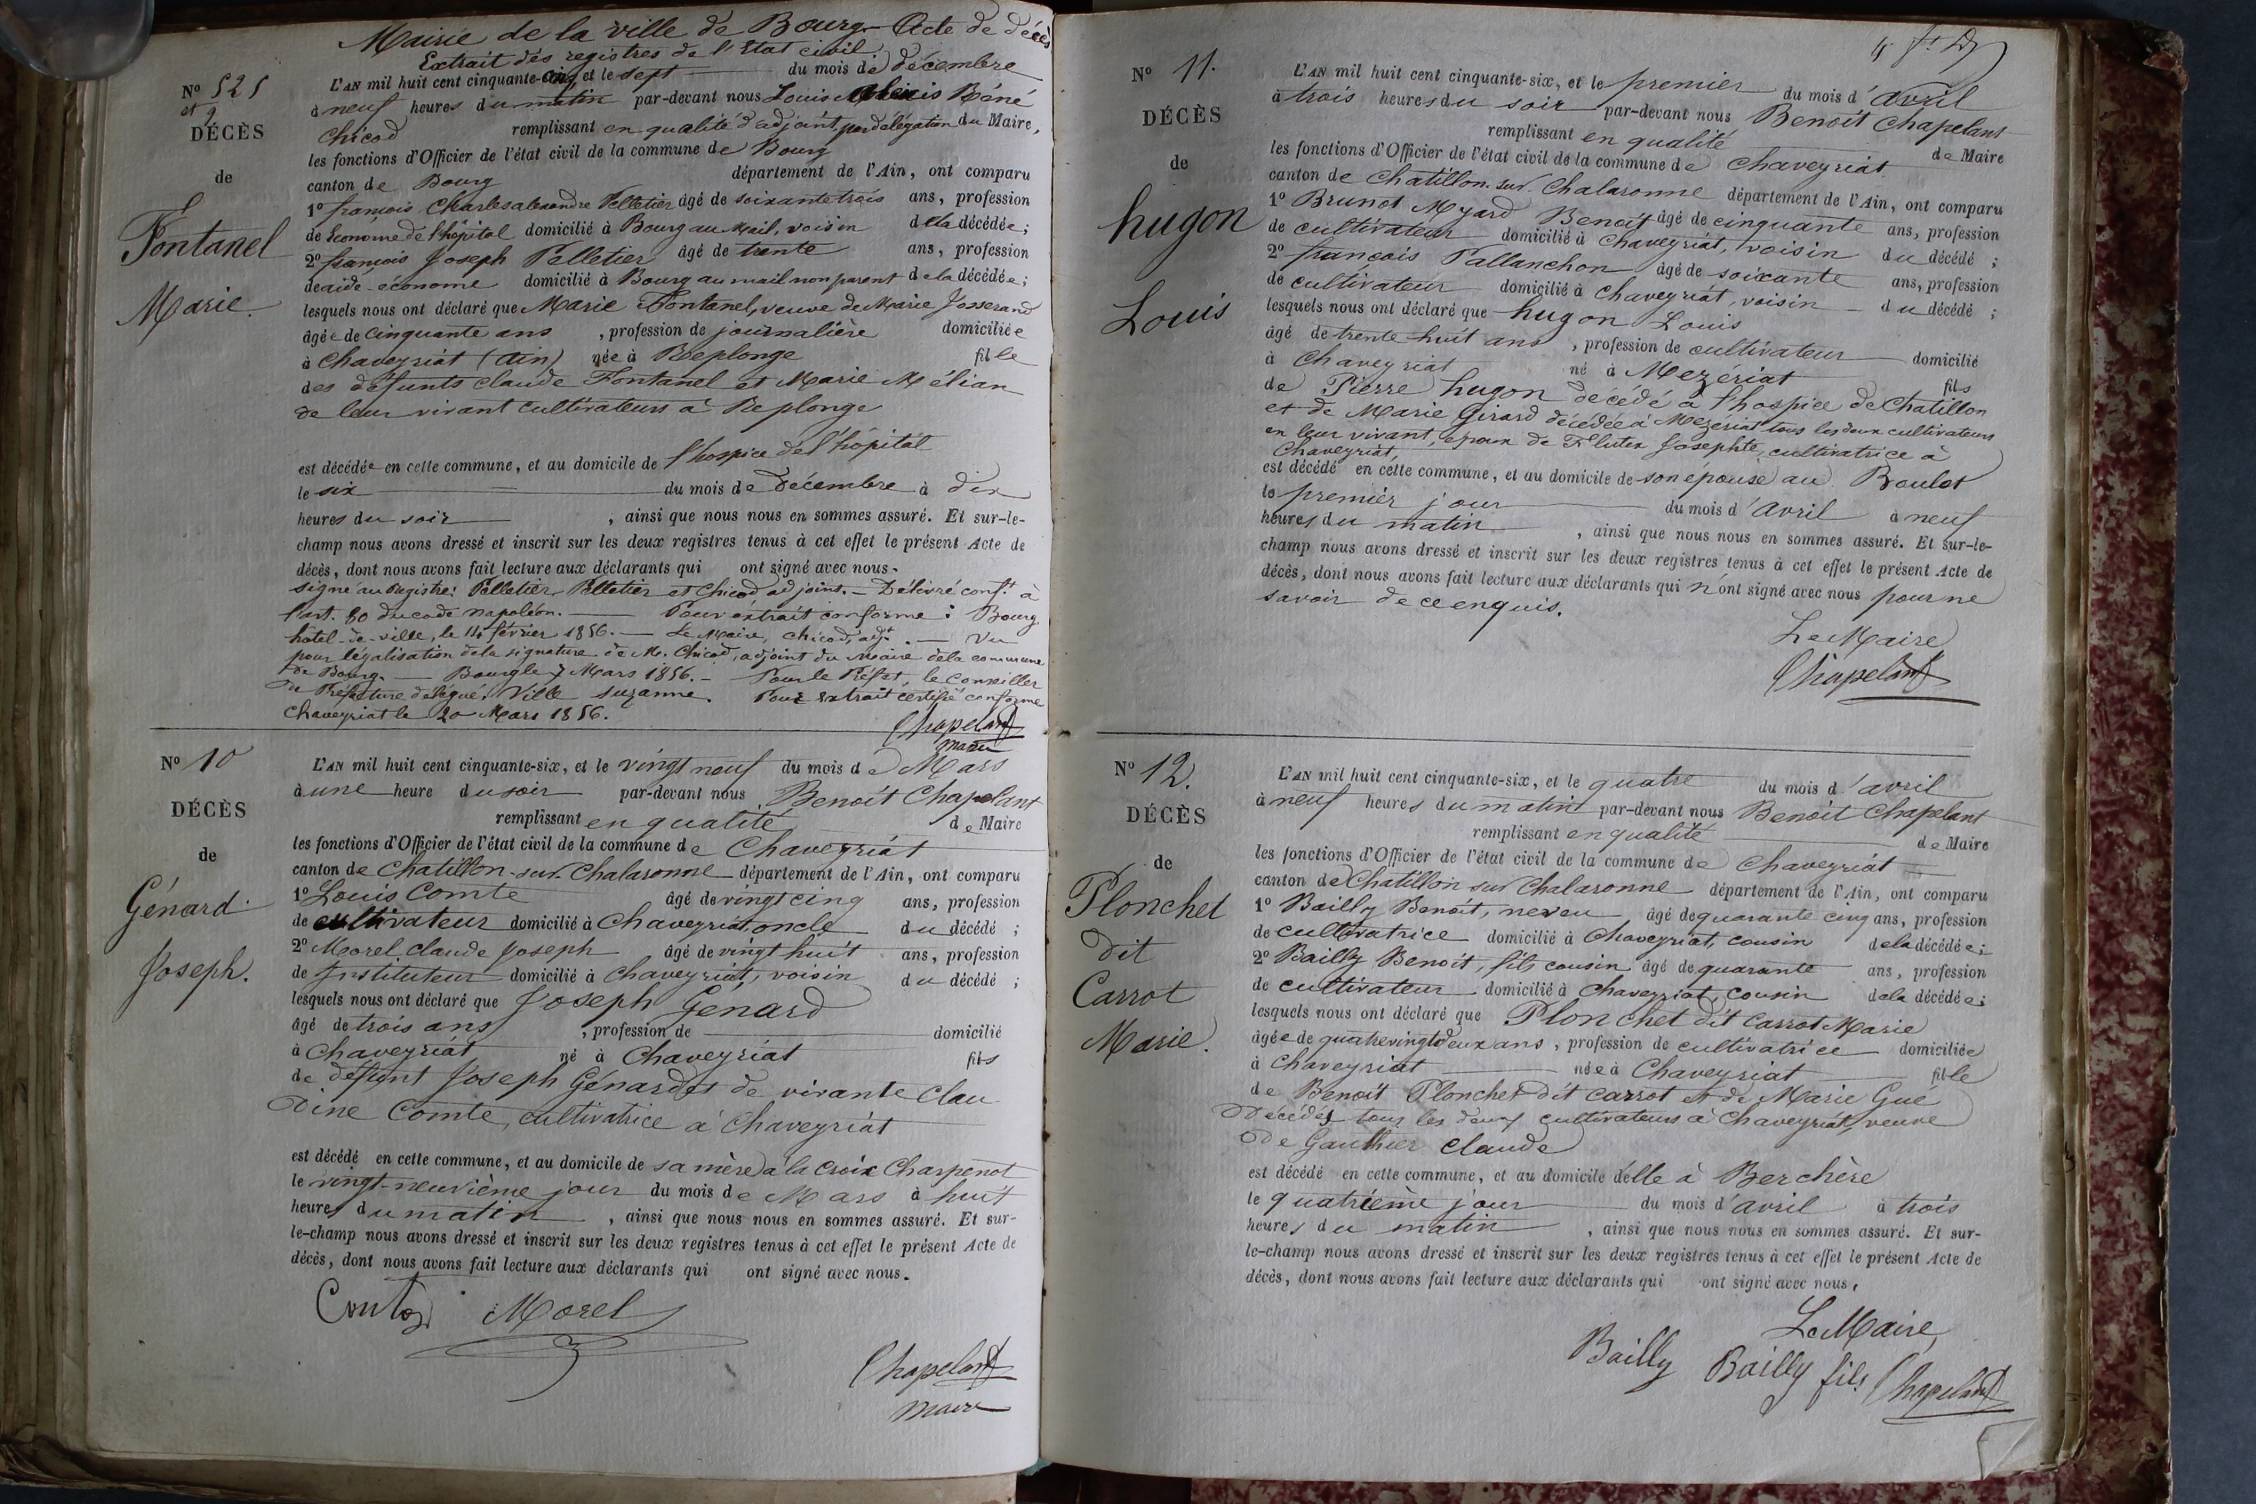 Mairie de la ville de Bourg - Acte de décès
Extrait des registres de l'Etat civil.
N° 525
et 9
DÉCÈS
de
Fontanel
Marie.
L'AN mil huit cent cinquante-cinq et le sept du mois de décembre
à neuf heures du matin par-devant nous Louis Réné
Chicod remplissant en qualité d'adjoint, par délégation du Maire,
les fonctions d'Officier de l'état civil de la commune de Bourg
canton de Bourg département de l'Ain, ont comparu
1° françois Charles alexandre Pelletier âgé de soixante trois ans, profession
de Econome de l'hôpital domicilié à Bourg au Mail, voisin de la décédée;
2° françois Joseph Pelletier âgé de trente ans, profession
de aide-économe domicilié à Bourg au mail non parent de la décédée;
lesquels nous ont déclaré que Marie Fontanel, veuve de Marie Josserand
âgée de cinquante ans, profession de journalière domiciliée
à Chaveyriat (Ain) née à Replonge fille
des défunts claude Fontanel et Marie Mélian
de leur vivant cultivateurs à Replonge
est décédée en cette commune, et au domicile de l'hospice de l'hôpital
le six du mois de Décembre à dix
heures du soir, ainsi que nous nous en sommes assuré. Et sur-le-
champ nous avons dressé et inscrit sur les deux registres tenus à cet effet le présent Acte de
décès, dont nous avons fait lecture aux déclarants qui ont signé avec nous.
Signé au Registre: Pelletier, Pelletier et Chicod adjoint. - Délivré conft. à
l'art. 80 du code Napoléon. - Pour extrait conforme: Bourg
hôtel-de-ville, le 14 février 1856. - Le Maire, Chicod, adjt. - Vu
pour légalisation de la signature de M. Chicod, adjoint du Maire de la commune
de Bourg. - Bourg le 7 Mars 1856. - Pour le Préfet, le Conseiller
de Préfecture délégué. Ville suzanne. Pour Extrait certifié conforme
Chaveyriat le 20 Mars 1856.
Chapelant
maire
N° 10
DÉCÈS
de
Génard
Joseph.
L'AN mil huit cent cinquante-six, et le vingt neuf du mois de Mars
à une heure du soir par-devant nous Benoît Chapelant
remplissant en qualité de Maire
les fonctions d'Officier de l'état civil de la commune de Chaveyriat
canton de Chatillon-sur-Chalaronne département de l'Ain, ont comparu
1° Louis Comte âgé de vingt cinq ans, profession
de cultivateur domicilié à Chaveyriat oncle du décédé;
2° Morel claude Joseph âgé de vingt huit ans, profession
de Instituteur domicilié à Chaveyriat, voisin du décédé;
lesquels nous ont déclaré que Joseph Genard
âgé de trois ans, profession de domicilié
à Chaveyriat né à Chaveyriat fils
de défunt Joseph Génard et de vivante Clau
dine Comte, cultivatrice à Chaveyriat
est décédé en cette commune, et au domicile de sa mère à la croix Charpenot
le vingt-neuvième jour du mois de Mars à huit
heures du matin, ainsi que nous nous en sommes assuré. Et sur-
le-champ nous avons dressé et inscrit sur les deux registres tenus à cet effet le présent Acte de
décès, dont nous avons fait lecture aux déclarants qui ont signé avec nous.
Morel
Chapelant
maire
N° 11.
DÉCÈS
de
hugon
Louis
L'AN mil huit cent cinquante-six, et le premier du mois d'avril
à trois heures du soir par-devant nous Benoît Chapelant
remplissant en qualité de Maire
les fonctions d'Officier de l'état civil de la commune de Chaveyriat
canton de Chatillon-sur-Chalaronne département de l'Ain, ont comparu
1° Brunot Myard Benoît âgé de cinquante ans, profession
de cultivateur domicilié à Chaveyriat, voisin du décédé;
2° françois Pallanchon âgé de soixante ans, profession
de cultivateur domicilié à Chaveyriat, voisin du décédé;
lesquels nous ont déclaré que hugon Louis
âgé de trente huit ans, profession de cultivateur domicilié
à Chaveyriat né à Mezériat fils
de Pierre hugon décédé à l'hospice de Chatillon
et de Marie Girard décédée à Mezériat tous les deux cultivateurs
en leur vivant, époux de Josephte, cultivatrice à
Chaveyriat,
est décédé en cette commune, et au domicile de son épouse au Boulot
le premier jour du mois d'avril à neuf
heures du matin, ainsi que nous nous en sommes assuré. Et sur-le-
champ nous avons dressé et inscrit sur les deux registres tenus à cet effet le présent Acte de
décès, dont nous avons fait lecture aux déclarants qui n'ont signé avec nous pour ne
savoir de ce enquis.
Le Maire
Chapelant
N° 12.
DÉCÈS
de
Plonchet
dit
Carrot
Marie.
L'AN mil huit cent cinquante-six, et le quatre du mois d'avril
à neuf heures du matin par-devant nous Benoît Chapelant
remplissant en qualité de Maire
les fonctions d'Officier de l'état civil de la commune de Chaveyriat
canton de Chatillon sur Chalaronne département de l'Ain, ont comparu
1° Bailly Benoît, neveu âgé de quarante cinq ans, profession
de cultivatrice domicilié à Chaveyriat, cousin de la décédée;
2° Bailly Benoît, fils cousin âgé de quarante ans, profession
de cultivateur domicilié à Chaveyriat, cousin de la décédée;
lesquels nous ont déclaré que Plonchet dit Carrot Marie
âgée de quatrevingt deux ans, profession de cultivatrice domiciliée
à Chaveyriat née à Chaveyriat fille
de Benoît Plonchet dit Carrot et de Marie Gué
décédés tous les deux cultivateurs à Chaveyriat, veuve
de Gauthier Claude
est décédé en cette commune, et au domicile d'elle à Berchère
le quatrième jour du mois d'avril à trois
heures du matin, ainsi que nous nous en sommes assuré. Et sur-
le-champ nous avons dressé et inscrit sur les deux registres tenus à cet effet le présent Acte de
décès, dont nous avons fait lecture aux déclarants qui ont signé avec nous.
Le Maire,
Bailly Bailly fils Chapelant